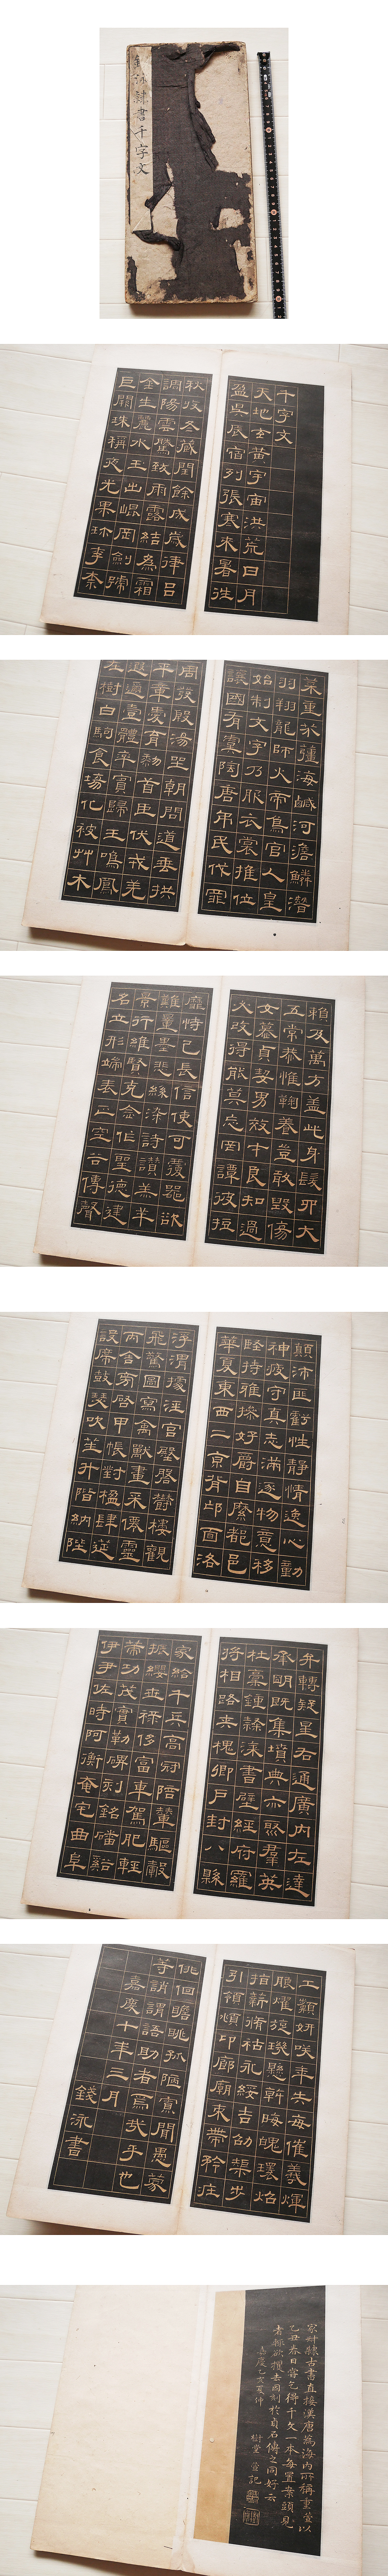 錢泳隸書千字文
千字文
天地玄黃宇宙洪荒日月
盈昃辰宿列張寒來暑往
秋收冬藏閏餘成歲律呂
調陽雲騰致雨露結為霜
金生麗水玉出崐岡劍號
巨闕珠稱夜光果珍李柰
菜重芥薑海鹹河澹鱗潛
羽翔龍師火帝鳥官人皇
始制文字乃服衣裳推位
讓國有虞陶唐弔民伐罪
周發殷湯坐朝問道垂拱
平章愛育黎首臣伏戎羌
遐邇壹體率賓歸王鳴鳳
在樹白駒食場化被艸木
賴及萬方蓋此身髮四大
五常恭惟鞠養豈敢毀傷
女慕貞絜男效才良知過
必改得能莫忘罔譚彼短
靡恃己長信使可覆器欲
難量墨悲絲染詩讚羔羊
景行維賢克念作聖德建
名立形端表正空谷傳聲
顛沛匪虧性靜情逸心動
神疲守真志滿逐物意移
堅持雅操好爵自縻都邑
華夏東西二京背邙面洛
浮渭據涇宮殿盤鬱樓觀
飛驚圖寫禽獸畫采僊靈
丙舍旁啟甲帳對楹肆筵
設席鼓瑟吹笙升階納陛
弁轉疑星右通廣內左達
承明既集墳典亦聚羣英
杜稾鍾隸漆書壁經府羅
將相路俠槐卿戶封八縣
家給千兵高冠陪輦驅轂
振纓世祿侈富車駕肥輕
策功茂實勒碑刻銘磻谿
伊尹佐時阿衡奄宅曲阜
工顰妍笑年矢每催羲暉
朗燿旋璣懸斡晦魄環照
指薪脩祜永綏吉劭矩步
引領俯仰廊廟束帶矜莊
徘徊瞻眺孤陋寡聞愚蒙
等誚謂語助者焉哉乎也
嘉慶十年三月
錢泳書
隸古書直接漢唐為海內所稱重堂以
乙丑春日嘗乞得千文一本每置案頭見
者輒欲攫去因刻於貞石傳之同好云
嘉慶乙亥夏仲 樹堂 記